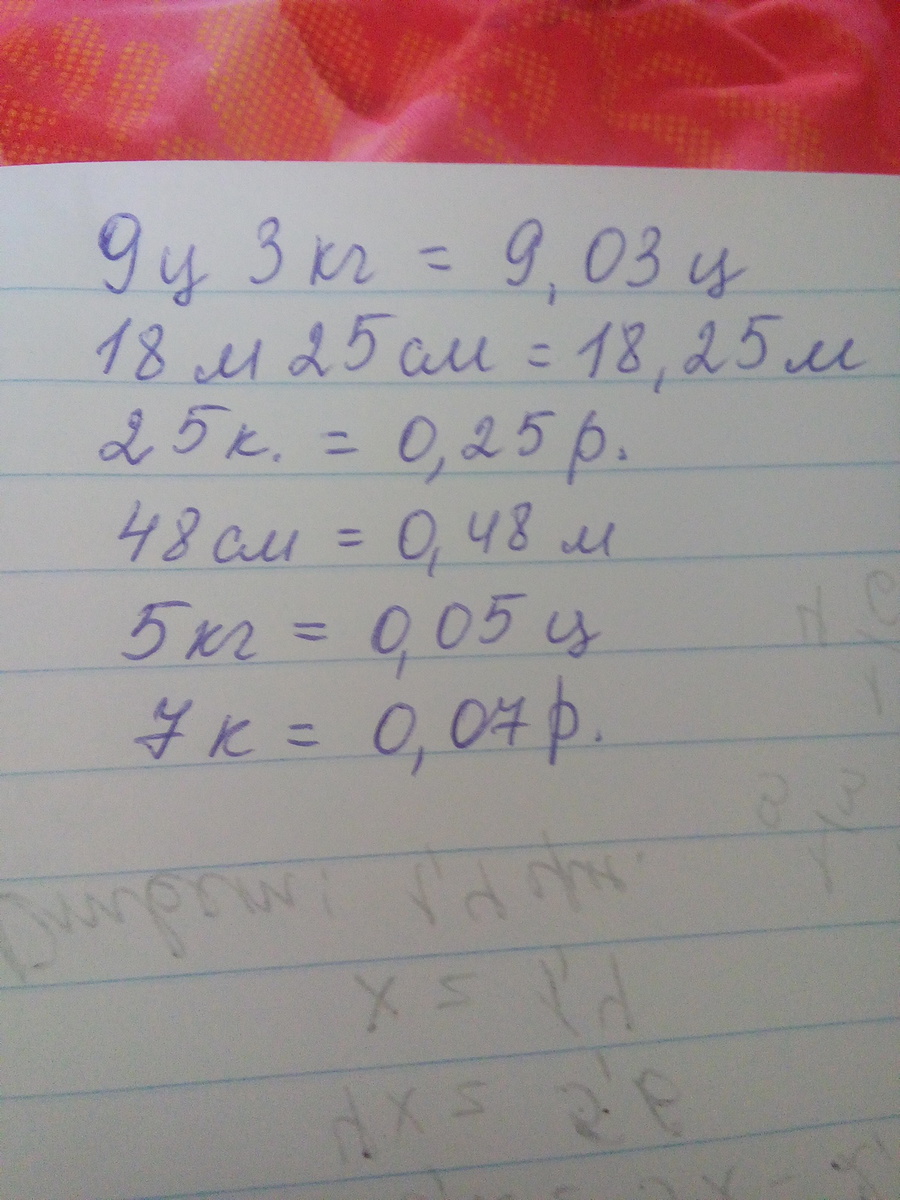 9 ц 3 кг = 9,03 ц
18 м 25 см = 18,25 м
25 к. = 0,25 р.
48 см = 0,48 м
5 кг = 0,05 ц
7 к = 0,07 р.